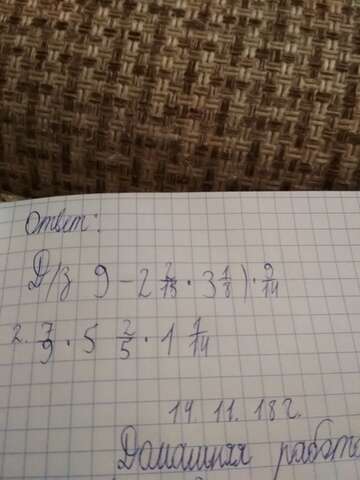 Ответ:
Д/з 9 - 2 2/13 · 3 1/8) · 9/14
2. 7/9 · 5 2/5 · 1 1/14
14. 11. 18 г.
Домашняя работа